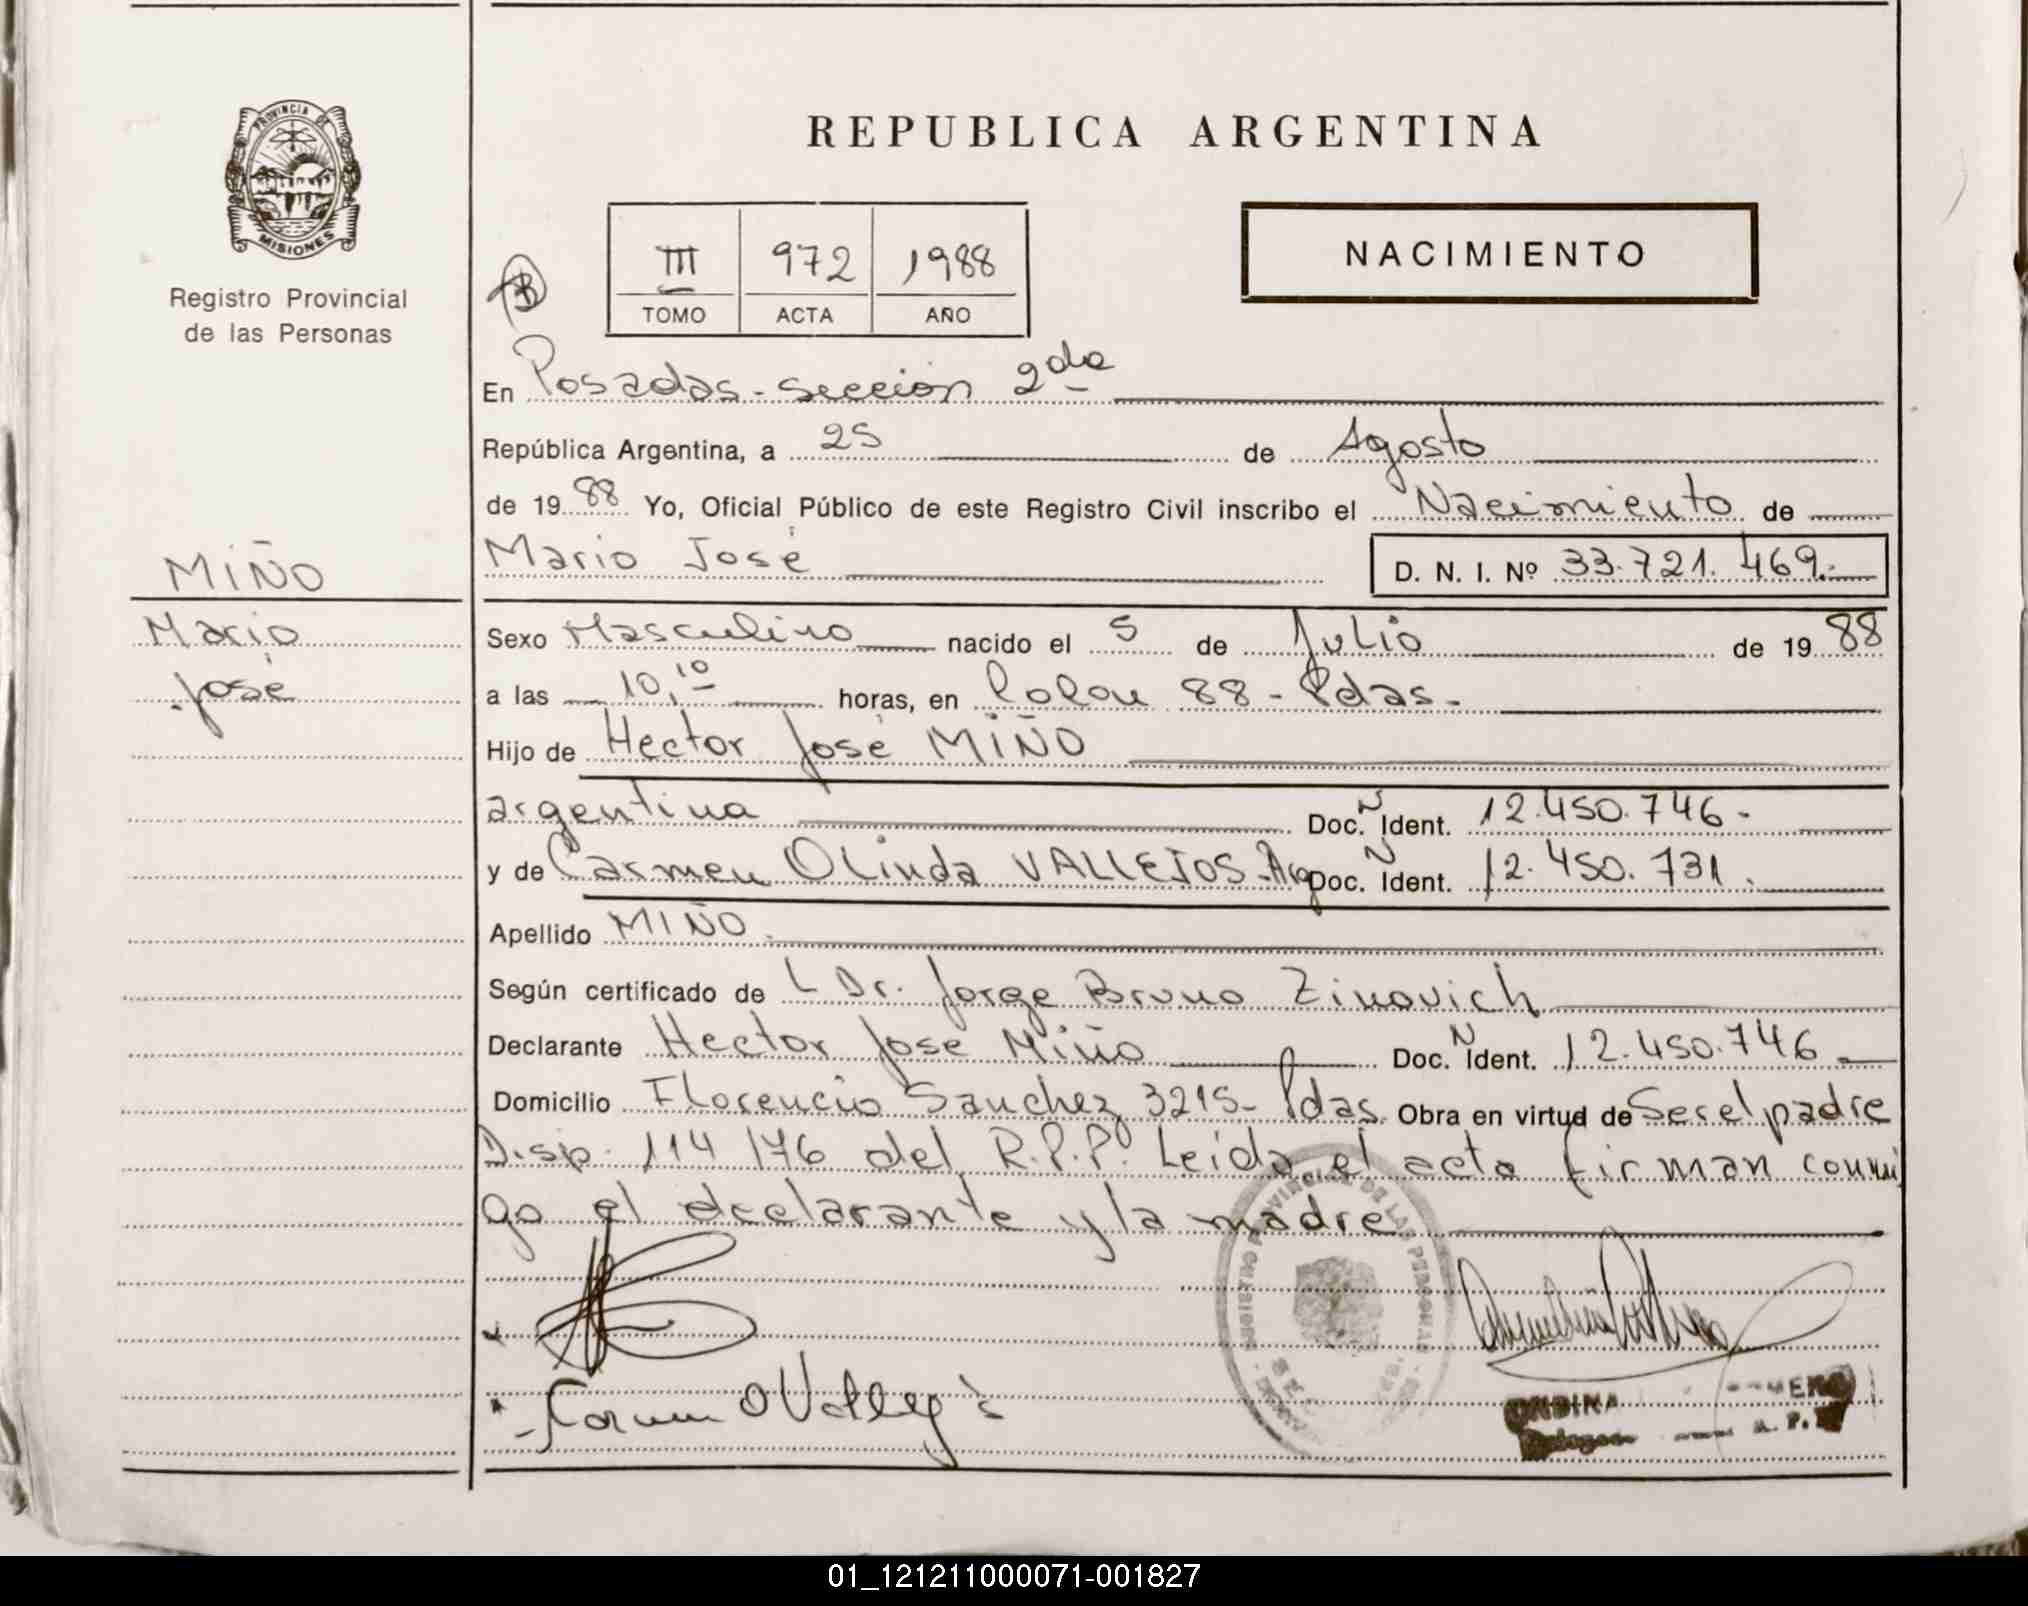 PROVINCIA DE
MISIONES
Registro Provincial
de las Personas
MIÑO
Mario
José
REPUBLICA ARGENTINA
III 972 1988
TOMO ACTA AÑO
NACIMIENTO
En Posadas - sección 2da
República Argentina, a 25 de Agosto
de 1988 Yo, Oficial Público de este Registro Civil inscribo el Nacimiento de
Mario José D. N. I. Nº 33.721.469.-
Sexo Masculino nacido el 5 de Julio de 1988
a las 10,10 horas, en Colon 88 - Pdas -
Hijo de Hector José MIÑO
argentina Doc. N Ident. 12.450.746 -
y de Carmen Olinda VALLEJOS - Arg Doc. N Ident. 12.450.731.
Apellido MIÑO.
Según certificado de L Dr. Jorge Bruno Zinovich
Declarante Hector Jose Miño Doc. N Ident. 12.450.746
Domicilio Florencio Sanchez 3215 - Pdas. Obra en virtud de Ser el padre
Disp. 114/76 del R.P.P. Leída el acta firman conmi
go el declarante y la madre
REGISTRO PROVINCIAL DE LAS PERSONAS
MISIONES
Carmen O Vallejos
ONDINA
01_121211000071-001827